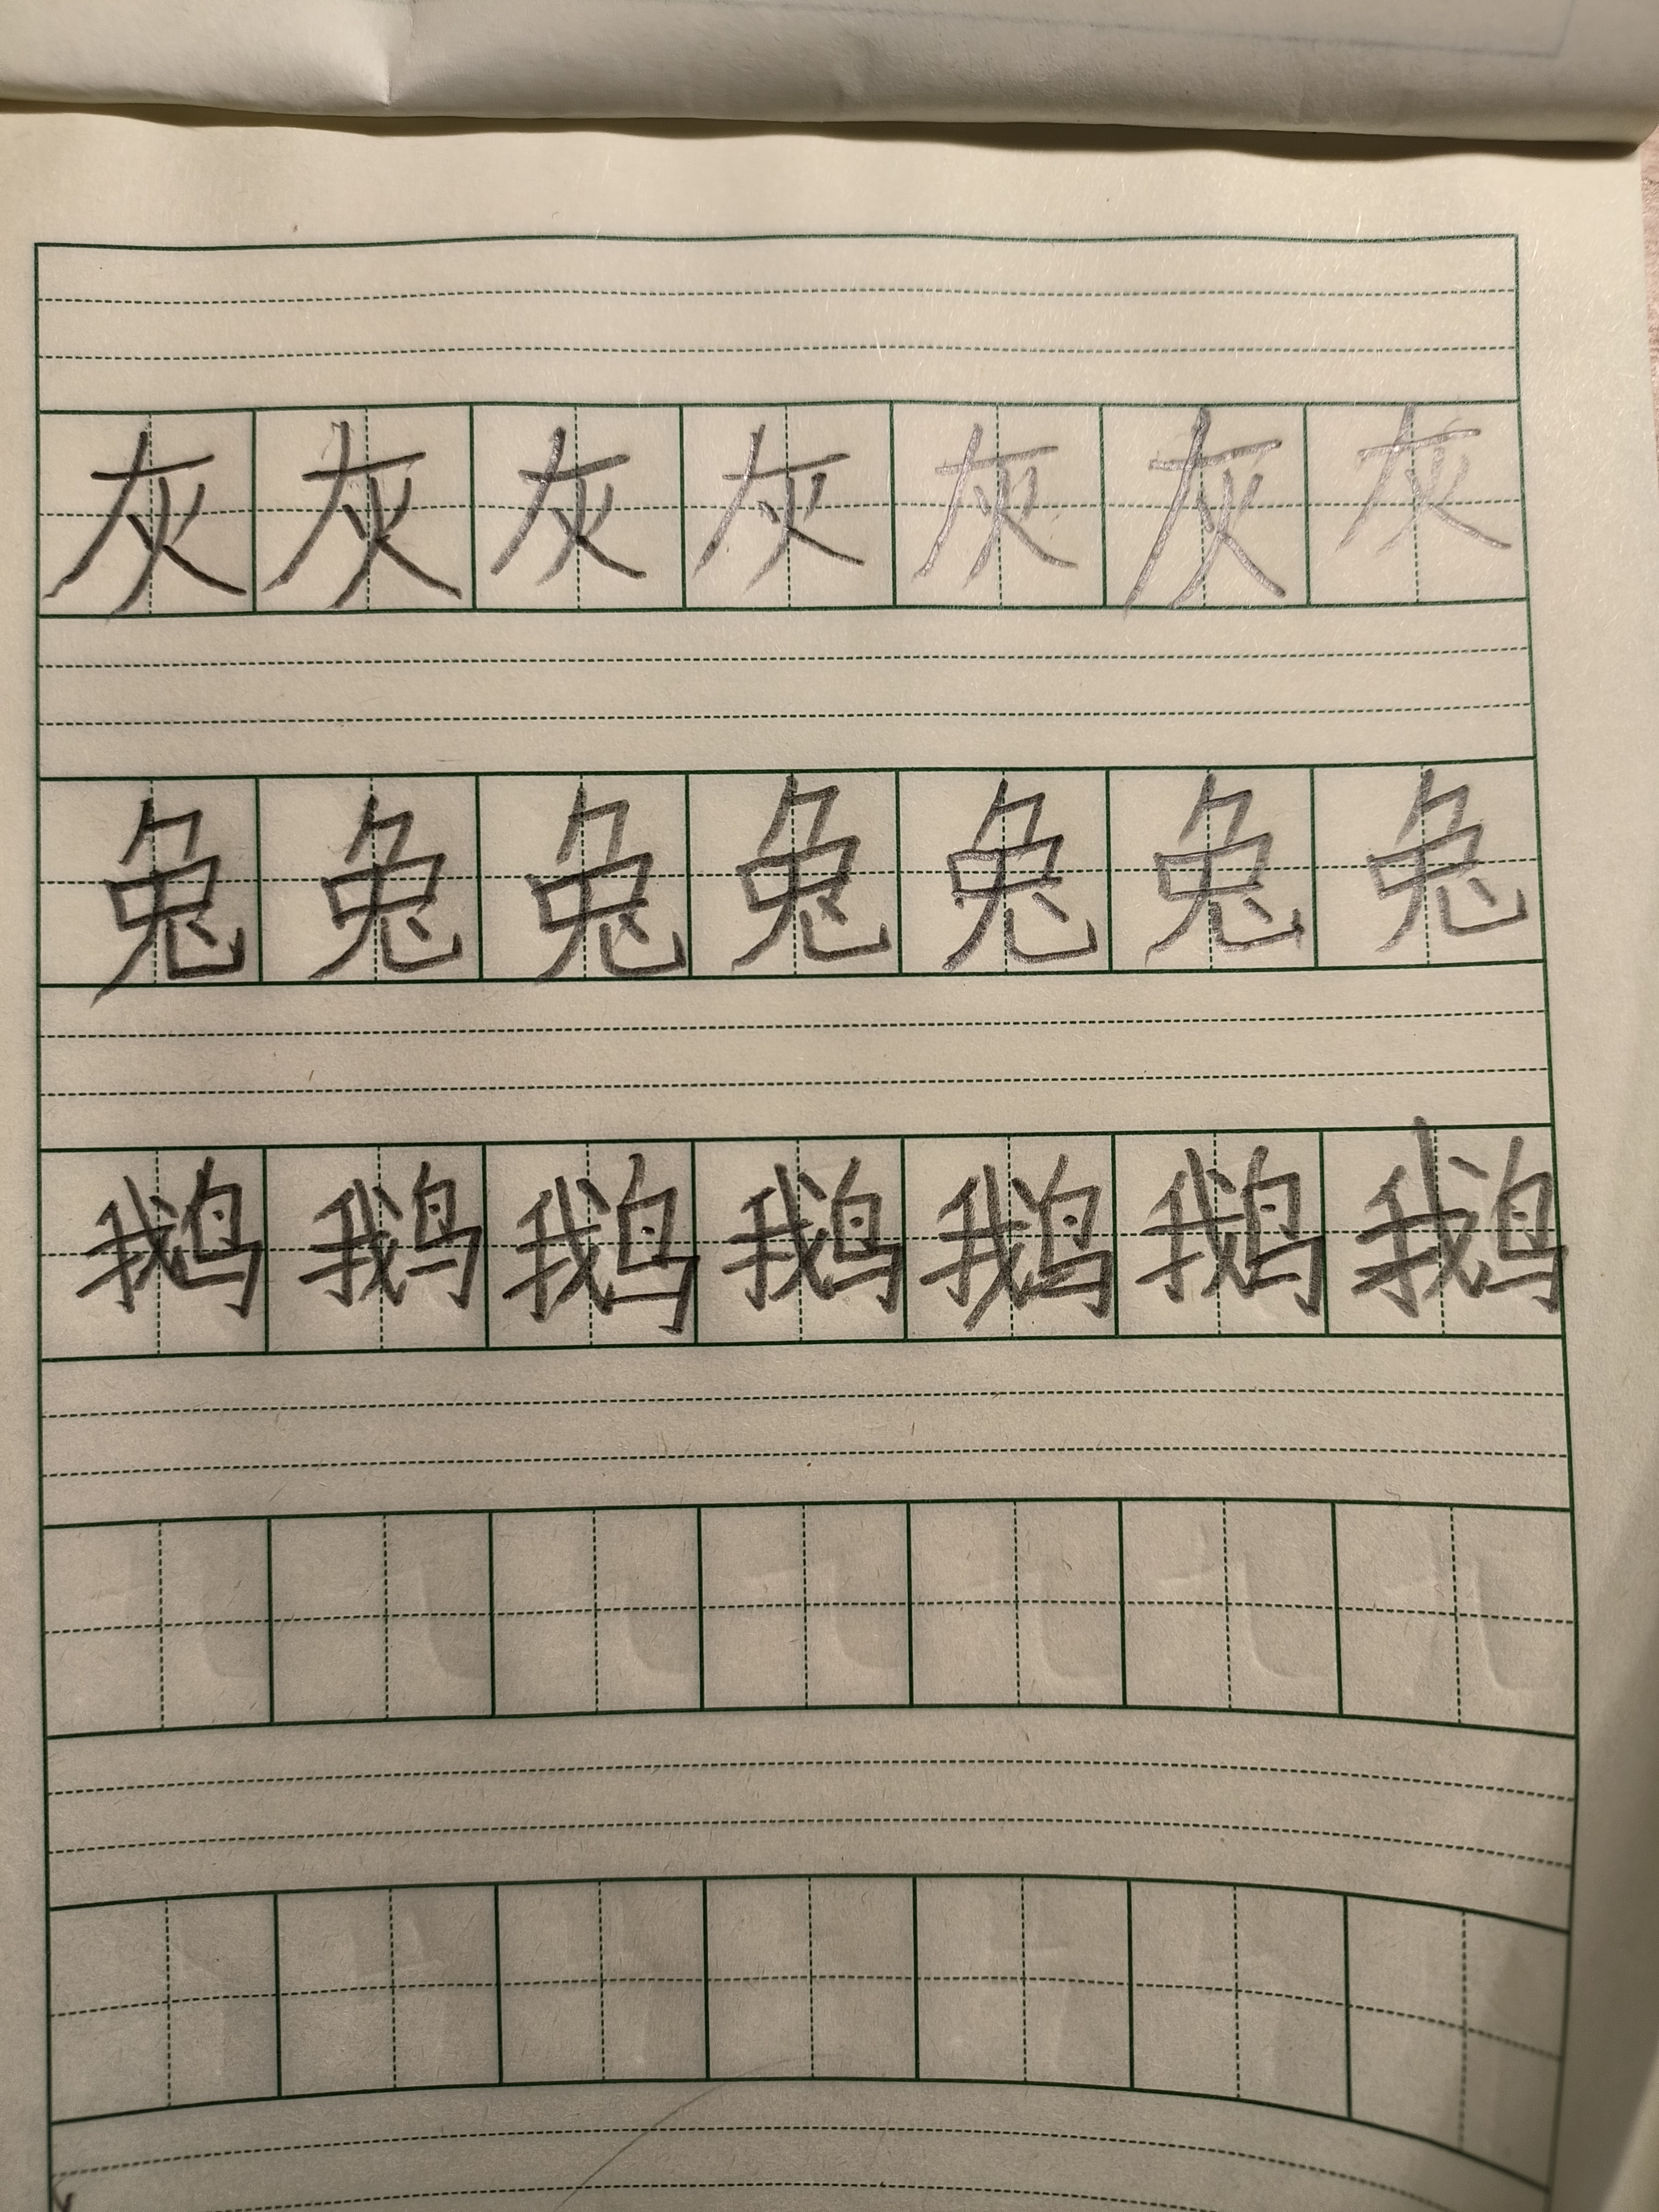 灰灰灰灰灰灰灰
兔兔兔兔兔兔兔
鹅鹅鹅鹅鹅鹅鹅